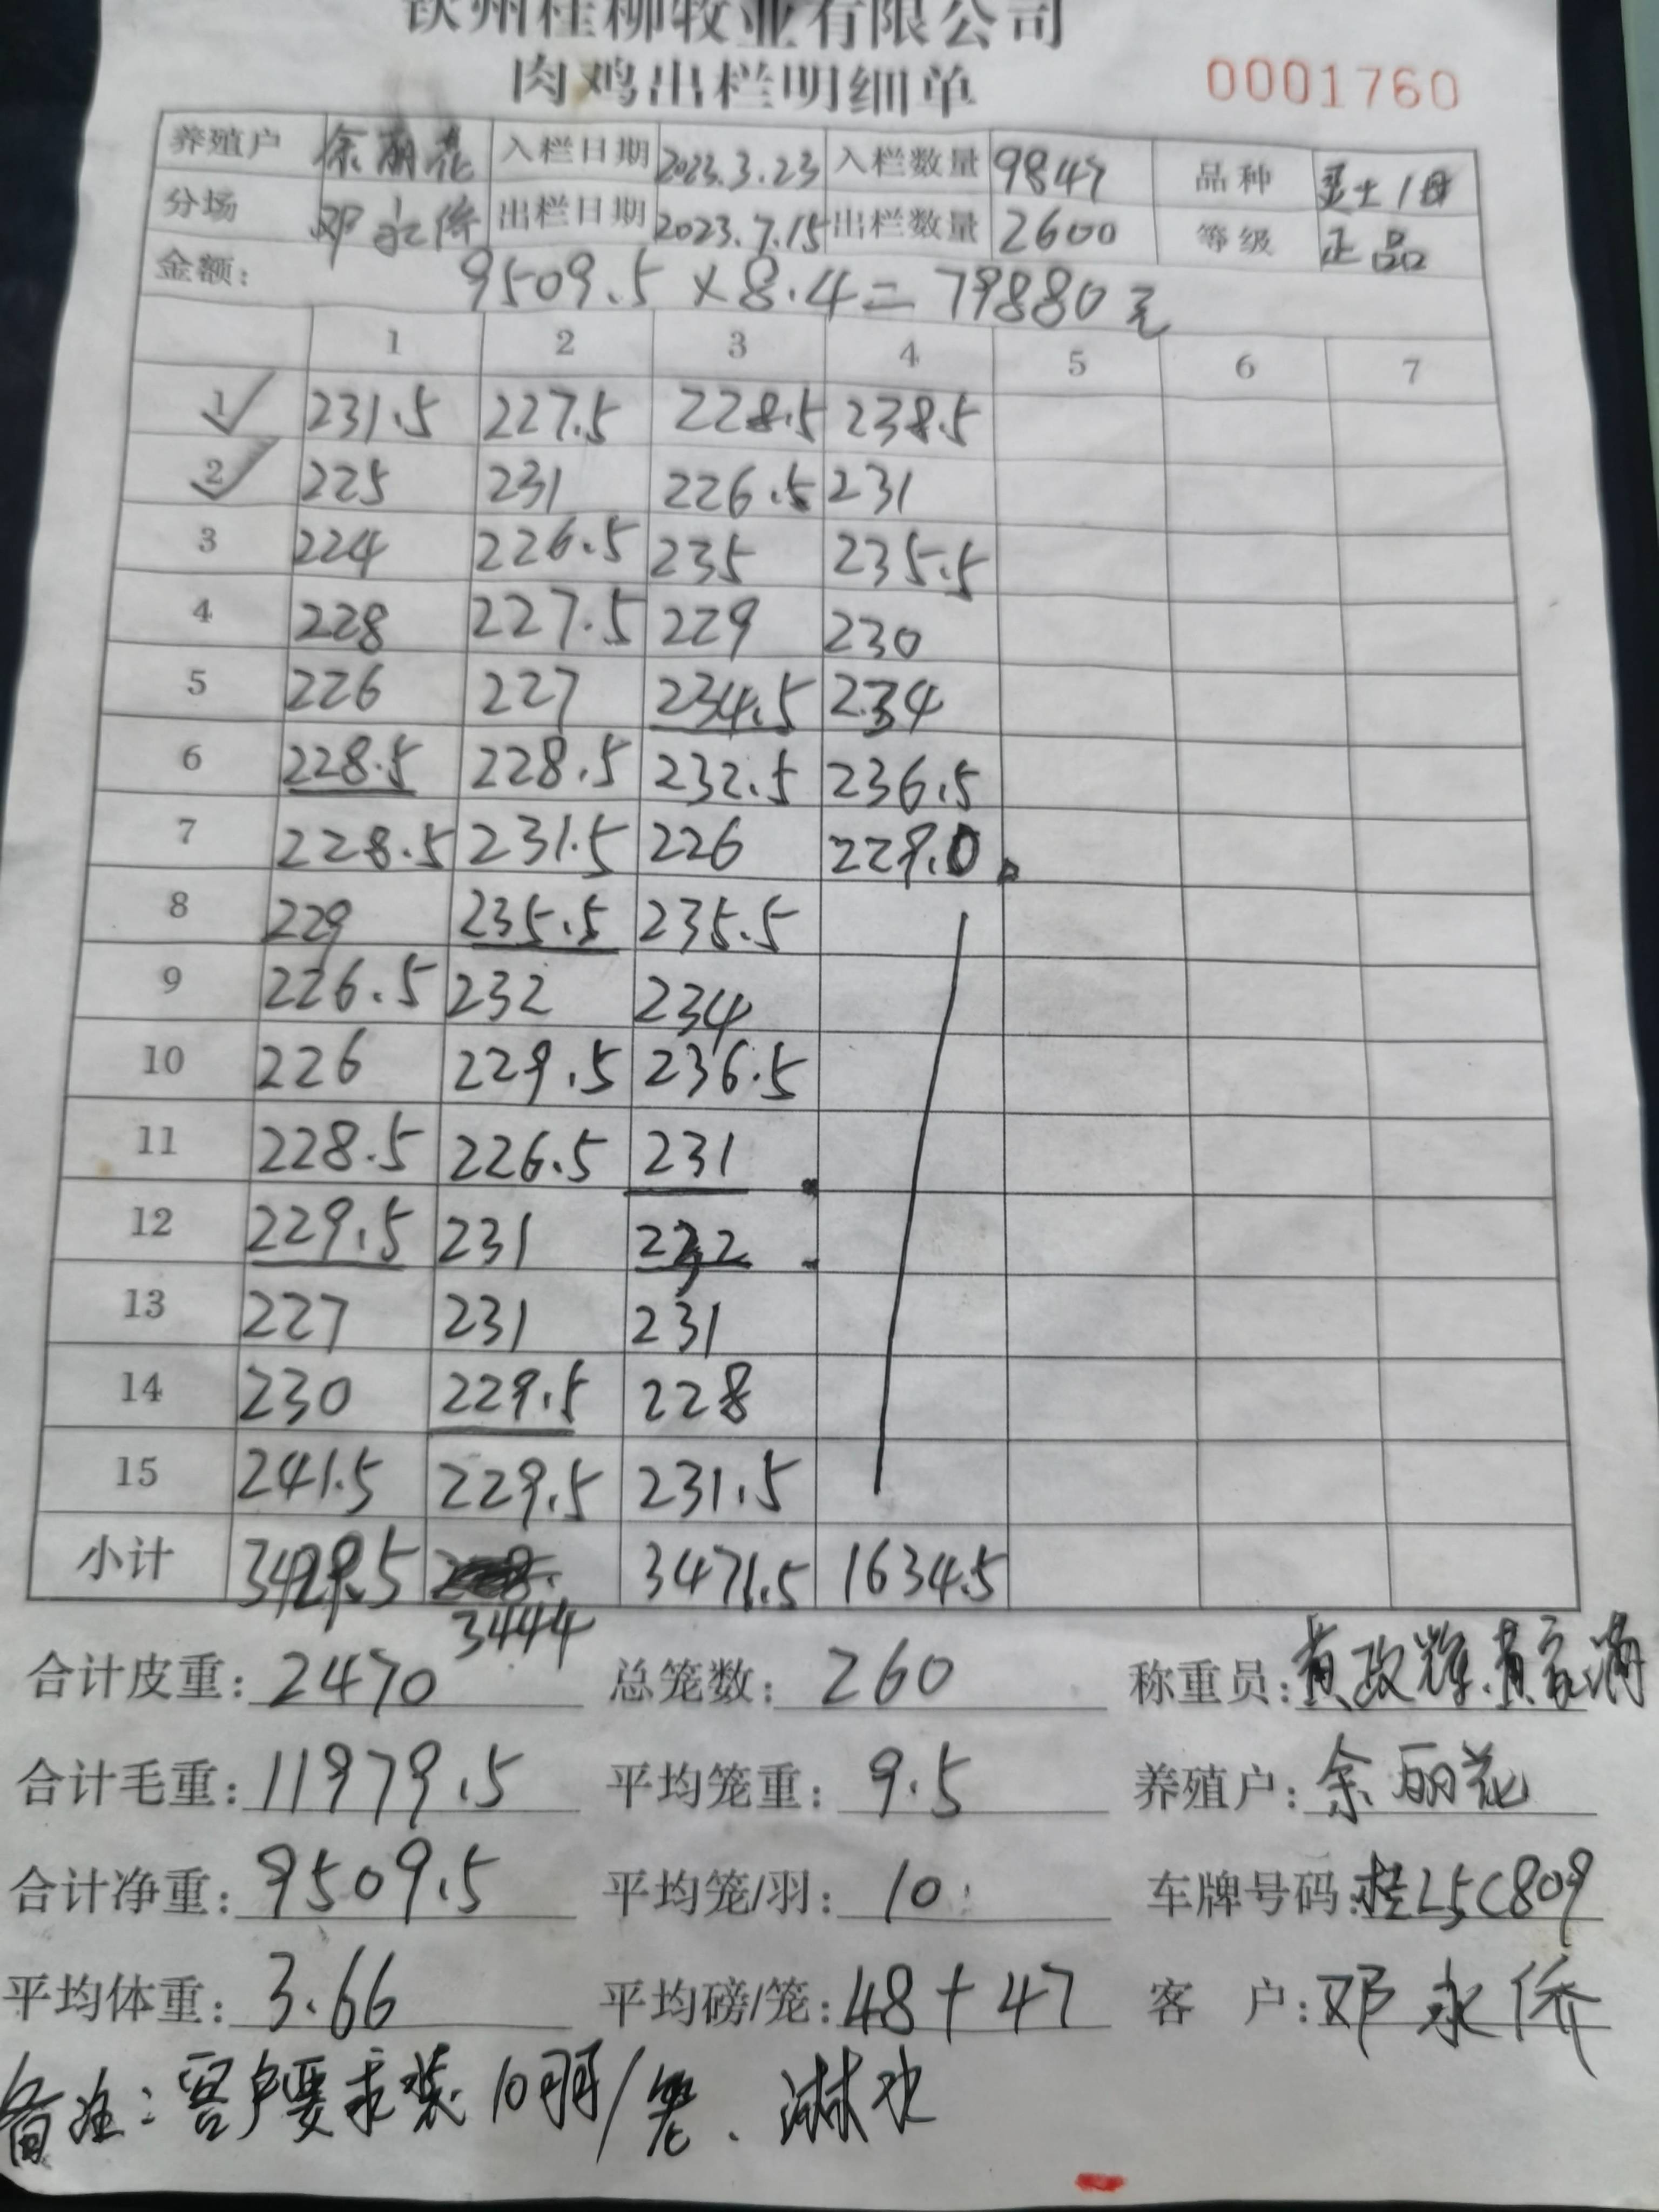 钦州桂柳牧业有限公司
肉鸡出栏明细单 0001760
养殖户 余丽花 入栏日期 2023.3.23 入栏数量 9847 品种 土1母
分场 邓永侨 出栏日期 2023.7.15 出栏数量 2600 等级 正品
金额: 9509.5×8.4=79880元
1 2 3 4 5 6 7
1 231.5 227.5 228.5 238.5
2 225 231 226.5 231
3 224 226.5 235 235.5
4 228 227.5 229 230
5 226 227 234.5 234
6 228.5 228.5 232.5 236.5
7 228.5 231.5 226 229.0
8 229 235.5 235.5
9 226.5 232 234
10 226 229.5 236.5
11 228.5 226.5 231
12 229.5 231 232
13 227 231 231
14 230 229.5 228
15 241.5 229.5 231.5
小计 3429.5 3444 3471.5 1634.5
合计皮重: 2470 总笼数: 260 称重员: 黄政辉、黄家满
合计毛重: 11979.5 平均笼重: 9.5 养殖户: 余丽花
合计净重: 9509.5 平均笼/羽: 10 车牌号码: 桂L5C809
平均体重: 3.66 平均磅/笼: 48+47 客户: 邓永侨
备注: 客户要求装10羽/笼、淋水